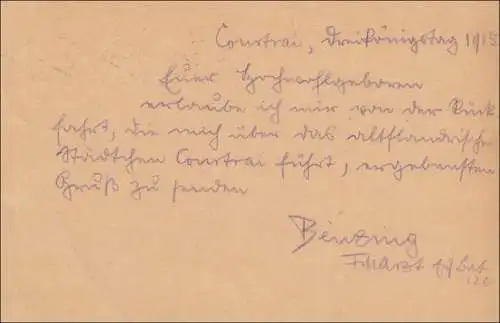 Courtrai, Dreikönigstag 1915
Euer Hochwohlgeboren
erlaube ich mir von der Rück
fahrt, die mich über das altflandrische
Städtchen Courtrai führt, ergebensten
Gruß zu senden
Benzing